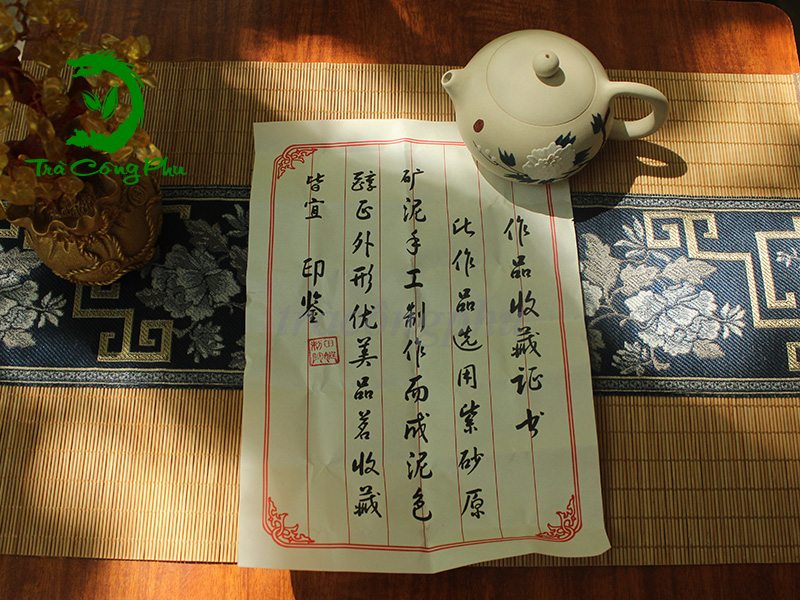 Trà Công Phu
作品收藏证书
此作品选用紫砂原
矿泥手工制作而成泥色
醇正外形优美品茗收藏
皆宜 印鉴